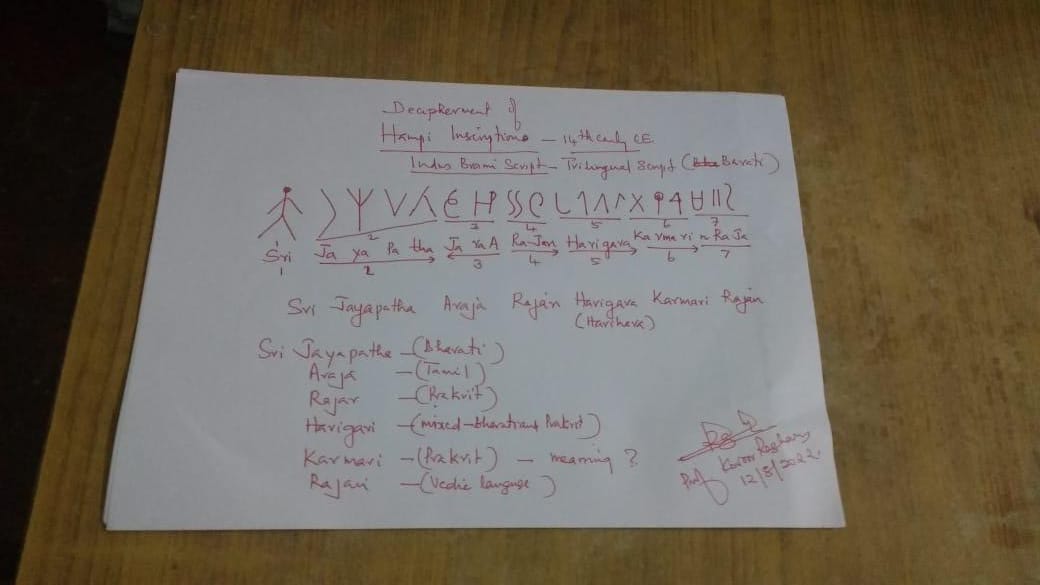 Decipherment of
Hampi Inscriptions – 14th centy CE.
Indus Brami Script – Trilingual Script (Barati)
2 3 4 5 6 7
Sri Ja ya Pa tha Ja ra A Ra Jan Harigara Karmari n Ra Ja
1 2 3 4 5 6 7
Sri Jayapatha Araja Raján Harigara Karmari Raján
(Harihara)
Sri Jayapatha – (Bharati)
Araja – (Tamil)
Rajar – (Prakrit)
Harigari – (mixed – bharati and Prakrit)
Karmari – (Prakrit) – meaning ?
Rajari – (Vedic languge)
Prof
12/8/2022